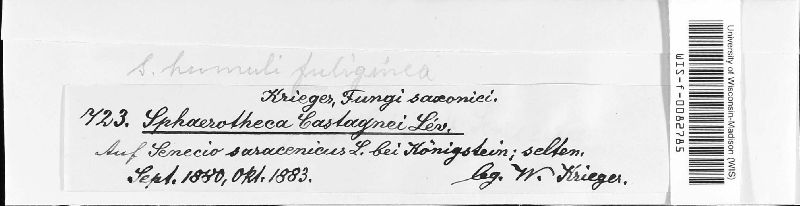 S. humuli fuliginea
Krieger, Fungi saxonici.
723. Sphaerotheca Castagnei Lév.
Auf Senecio saracenicus L. bei Königstein; selten.
Sept. 1880, Okt. 1883. lg. W. Krieger.
University of Wisconsin-Madison (WIS)
WIS-f-0082785